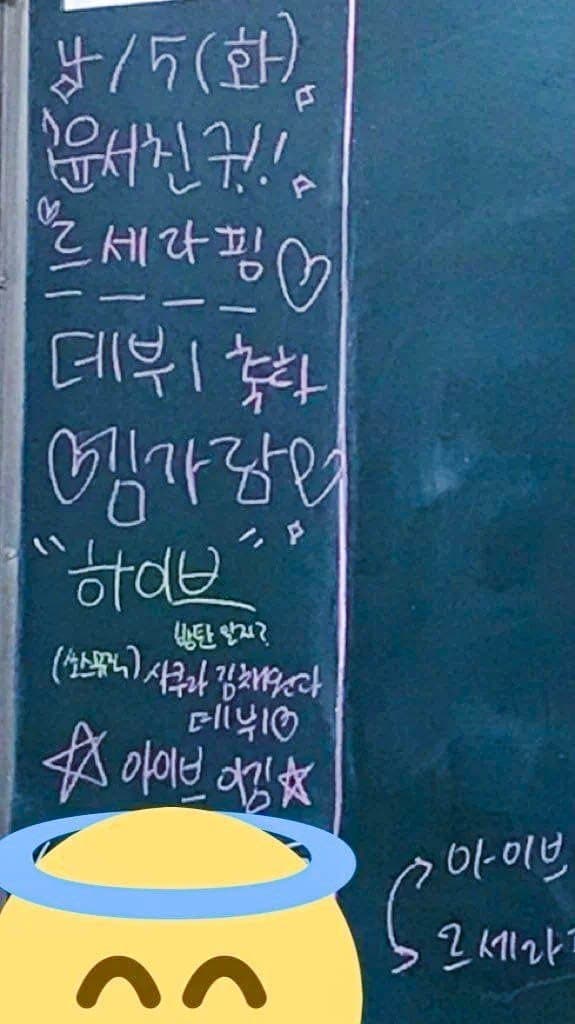 4/5 (화)
윤서친구!!
르세라핌
데뷔 축하
김가람
"하이브"
방탄 알지?
(쏘스뮤직) 사쿠라 김채원 다
데뷔
아이브 이김
아이브
르세라